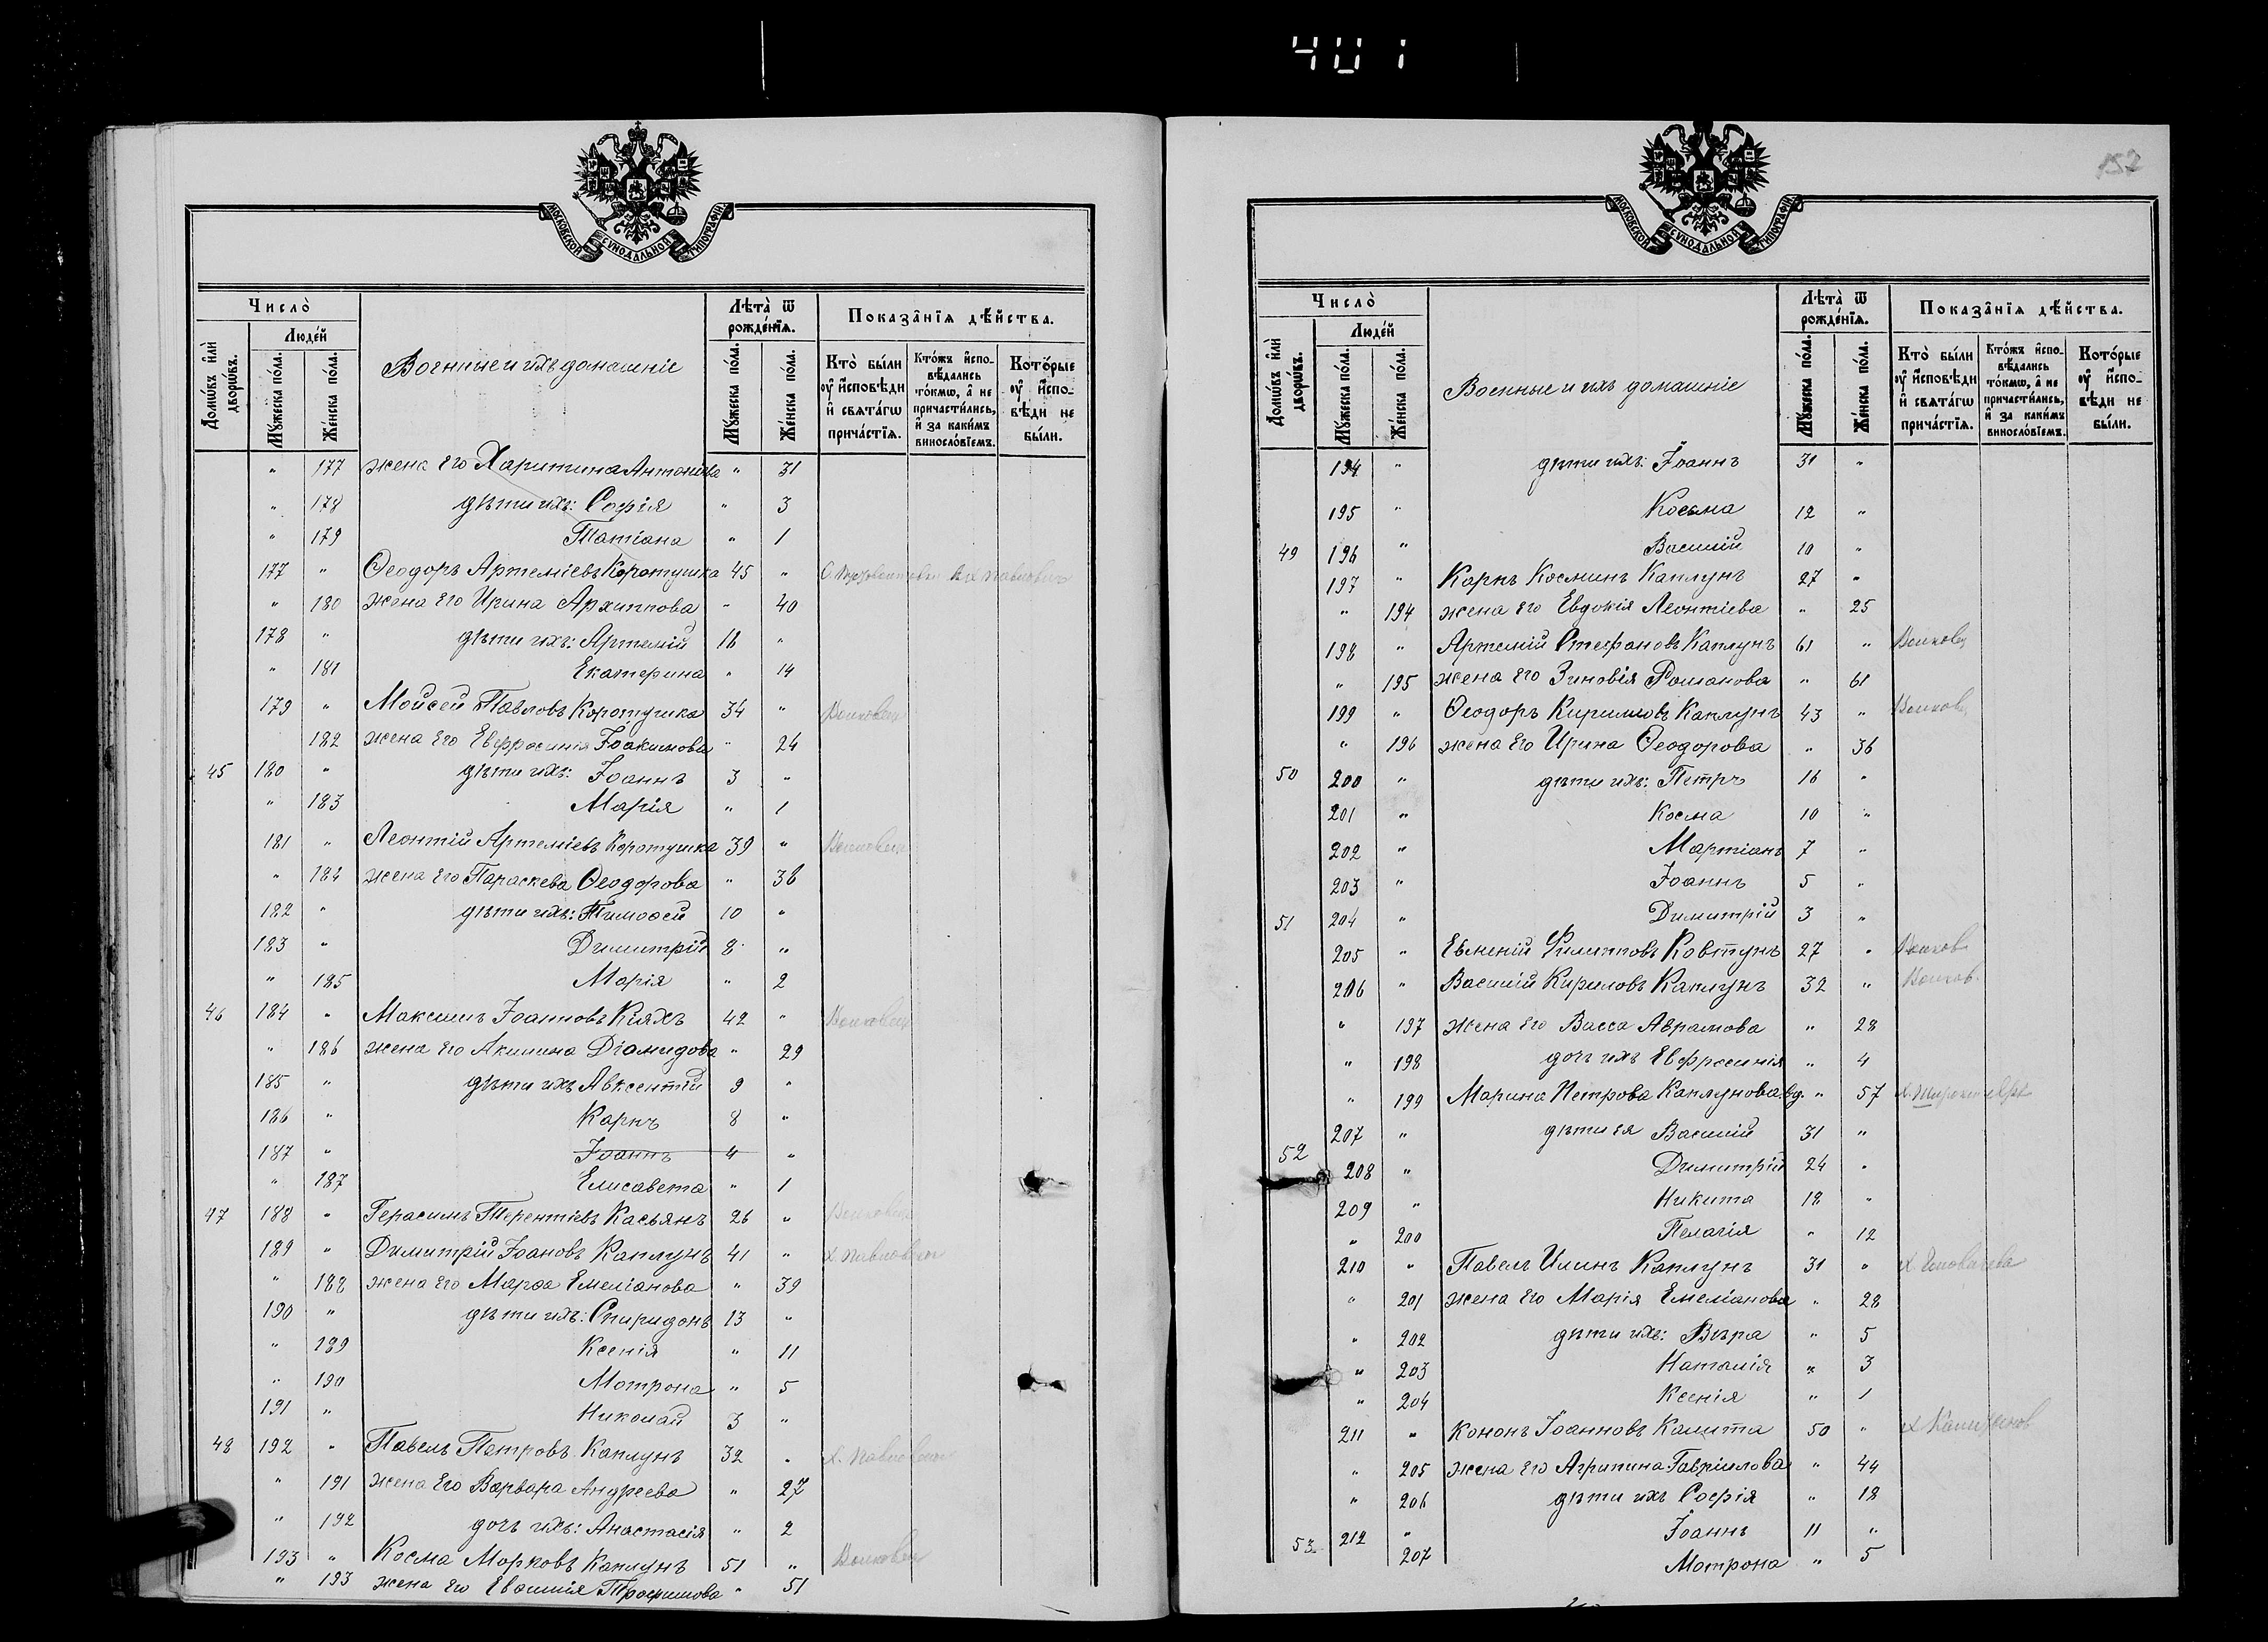 401
МОСКОВСКОЙ СУНОДАЛЬНОЙ ТИПОГРАФІИ
Число̀
Людей
Домѡвъ и҆лѝ дворѡвъ.
Мꙋжеска по́ла.
Же́нска по́ла.
Военные и ихъ домашніе
Лѣта̀ ѿ рожде́нїѧ.
Мꙋжеска по́ла.
Же́нска по́ла.
Показа̂нїѧ дѣ́йства.
Кто̀ бы́ли ᲂу҆ и҆сповѣди и҆ свѧта́гѡ прича́стїѧ.
Кто́жъ и҆спо-вѣдались то́кмѡ, а҆ не причасти́лись, и҆ за каки́мъ виносло́вїемъ.
Кото́рые ᲂу҆ и҆спо-вѣди не бы́ли.
" 177 жена его Харитина Антонова " 31
" 178 дѣти ихъ: Софія " 3
" 179 Татіана " 1
177 " Ѳеодоръ Артеміевъ Коротушка 45 "
" 180 жена его Ирина Архиппова " 40
178 " дѣти ихъ: Артемій 16 "
" 181 Екатерина " 14
179 " Мойсей Павловъ Коротушка 34 "
182 жена его Евфросинія Іоакимова " 24
45 180 " дѣти ихъ: Іоаннъ 3 "
" 183 Марія " 1
181 " Леонтій Артеміевъ Коротушка 39 "
" 184 жена его Параскева Ѳеодорова " 36
182 " дѣти ихъ: Тимоѳей 10 "
183 " Димитрій 8 "
" 185 Марія " 2
46 184 " Максимъ Іоанновъ Кіяхъ 42 "
" 186 жена его Акилина Діомидова " 29
185 " дѣти ихъ Авксентій 9 "
186 " Карпъ 8 "
187 " Іоаннъ 4 "
" 187 Елисавета " 1
47 188 " Герасимъ Терентіевъ Касьянъ 26 "
189 " Димитрій Іоановъ Каплунъ 41 "
" 188 жена его Марѳа Емеліанова " 39
190 " дѣти ихъ: Спиридонъ 13 "
" 189 Ксенія " 11
" 190 Мотрона " 5
191 " Николай 3 "
48 192 " Павелъ Петровъ Каплунъ 32 "
" 191 жена его Варвара Андреева " 27
" 192 дочь ихъ: Анастасія " 2
193 " Косма Марковъ Каплунъ 51 "
" 193 жена его Евѳимія Трофимова " 51
157
МОСКОВСКОЙ СУНОДАЛЬНОЙ ТИПОГРАФІИ
Число̀
Людей
Домѡвъ и҆лѝ дворѡвъ.
Мꙋжеска по́ла.
Же́нска по́ла.
Военные и ихъ домашніе
Лѣта̀ ѿ рожде́нїѧ.
Мꙋжеска по́ла.
Же́нска по́ла.
Показа̂нїѧ дѣ́йства.
Кто̀ бы́ли ᲂу҆ и҆сповѣди и҆ свѧта́гѡ прича́стїѧ.
Кто́жъ и҆спо-вѣдались то́кмѡ, а҆ не причасти́лись, и҆ за каки́мъ виносло́вїемъ.
Кото́рые ᲂу҆ и҆спо-вѣди не бы́ли.
194 " дѣти ихъ: Іоаннъ 31 "
195 " Косьма 12 "
49 196 " Василій 10 "
197 " Карпъ Косминъ Каплунъ 27 "
" 194 жена его Евдокія Леонтіева " 25
198 " Артемій Стефановъ Каплунъ 61 "
" 195 жена его Зиновія Романова " 61
199 " Ѳеодоръ Кириловъ Каплунъ 43 "
" 196 жена его Ирина Ѳеодорова " 36
50 200 " дѣти ихъ: Петръ 16 "
201 " Косма 10 "
202 " Мартіанъ 7 "
203 " Іоаннъ 5 "
51 204 " Димитрій 3 "
205 " Евмений Филипповъ Ковтунъ 27 "
206 " Василій Кириловъ Каплунъ 32 "
" 197 жена его Васса Аврамова " 28
" 198 дочь ихъ Евфросинія " 4
" 199 Марина Петрова Каплунова вд. " 57
207 " дѣти ея Василій 31 "
52 208 " Димитрій 24 "
209 " Никита 18 "
" 200 Пелагія " 12
210 " Павелъ Илинъ Каплунъ 31 "
" 201 жена его Марія Емеліанова " 28
" 202 дѣти ихъ: Вѣра " 5
" 203 Наталія " 3
" 204 Ксенія " 1
211 " Кононъ Іоанновъ Калита 50 "
" 205 жена его Агрипина Гавріилова " 44
" 206 дѣти ихъ Софія " 18
53 212 " Іоаннъ 11 "
207 Мотрона " 5